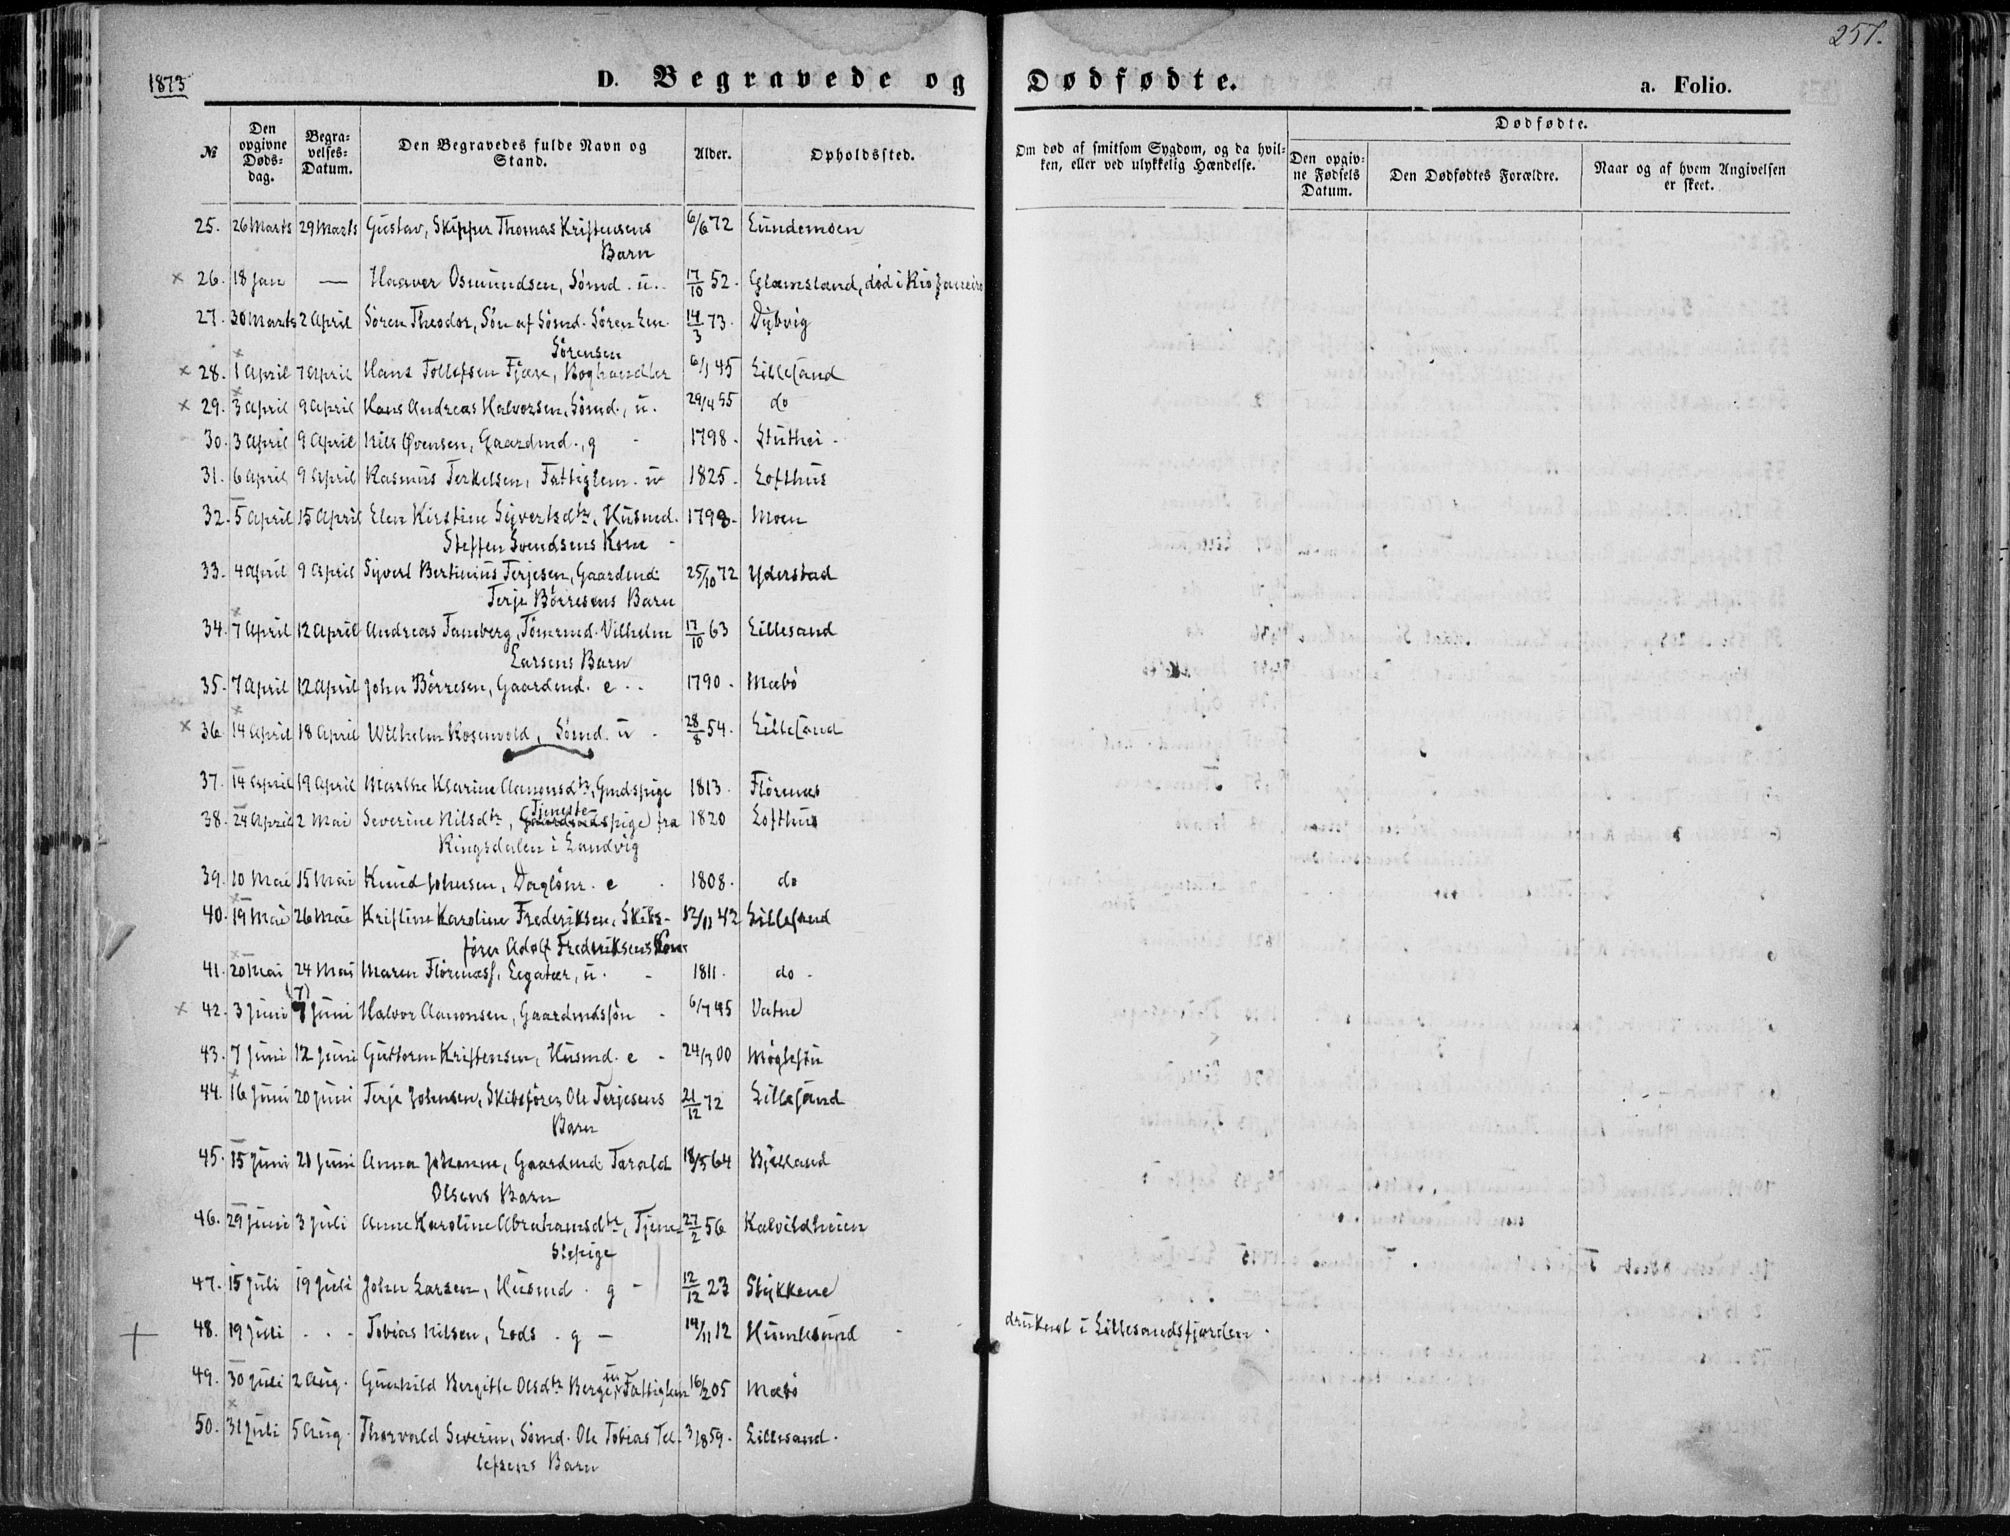 257.
1873
D. Begravede og Dødfødte.
a. Folio.
№
Den opgivne Døds-dag.
Begra-velses-Datum.
Den Begravedes fulde Navn og Stand.
Alder.
Opholdssted.
Om død af smitsom Sygdom, og da hvil-ken, eller ved ulykkelig Hændelse.
Dødfødte.
Den opgiv-ne Fødsels Datum.
Den Dødfødtes Forældre.
Naar og af hvem Angivelsen er skeet.
25. 26 Marts 29 Marts Gustav, Skipper Thomas Kristensens 6/6 72 Lundemoen
Barn
× 26. 18 Jan — Haaver Osmundsen, Sømd. u. 17/10 52. Glamsland, død i Rio Janeiro
27. 30 Marts 2 April Søren Theodor, Søn af Sømd. Søren Em. 14/3 73. Dybvig
Sørensen
× 28. 1 April 7 April Hans Tollefsen Fjære, Boghandler 6/1 45 Lillesand
× 29. 3 April 9 April Hans Andreas Halvorsen, Sømd., u. 29/4 55 do
30. 3 April 9 April Nils Øvensen, Gaardmd., g - 1798. Stuthei.
31. 6 April 9 April Rasmus Terkelsen, Fattiglem. u 1825. Lofthus
32. 5 April 15 April Elen Kirstine Syvertsdtr, Husmd. 1798. Moen
Steffen Svendsens Kone -
33. 4 April 9 April Syvert Bertinius Terjesen, Gaardmd. 25/10 72 Yderstad
Terje Børresens Barn
34. 7 April 12 April Andreas Faneberg, Tømrmd. Vilhelm 17/10 63 Lillesand
Larsens Barn
35. 7 April 12 April John Børresen, Gaardmd. e. 1790. Mæbø
× 36 14 April 18 April Wilhelm Rosenvold, Sømd. u. 28/8 54. Lillesand
37. 14 April 19 April Marthe Klarine Aanonsdtr, Gmdspige 1813. Flørenæs
38. 24 April 2 Mai Severine Nilsdtr, Tjenestepige fra 1820 Lofthus
Ringsdalen i Landvig
39. 10 Mai 15 Mai Knud Johnsen, Daglønr. e. 1808. do
40. 19 Mai 26 Mai Kristine Karoline Frederiksen, Skibs- 12/11 42 Lillesand
fører Adolf Frederiksens Kone
41. 20 Mai 24 Mai Maren Flørenæss, Legatær, u. - 1811. do -
× 42. 3 Juni (7) 7 Juni Halvor Aanonsen, Gaardmdssøn - 6/7 45 Vatne
43. 7 Juni 12 Juni Guttorm Kristensen, Husmd. e - 24/3 00 Møglestu
44. 16 Juni 20 Juni Terje Johnsen, Skibsfører Ole Terjesens 21/12 72 Lillesand
Barn
45. 15 Juni 21 Juni Anna Johanne, Gaardmd Tarald 18/5 64 Bjelland
Olsens Barn
46. 29 Juni 3 Juli Anne Karoline Abrahamsdtr, Tjene- 27/2 56 Kalvildheien
stepige
47. 15 Juli 19 Juli John Larsen, Husmd. g - 12/12 23 Stykkene
48. 19 Juli . . - Tobias Nilsen, Lods. g - 14/11 12 Humlesund - druknet i Lillesandsfjorden.
49. 30 Juli 2 Aug. Gunhild Bergitte Olsdtr Berge, u, Fattiglem 16/2 05 Mæbø
50. 31 Juli 5 Aug. Thorvald Severin, Sømd. Ole Tobias Tel- 3/8 59. Lillesand.
lefsens Barn